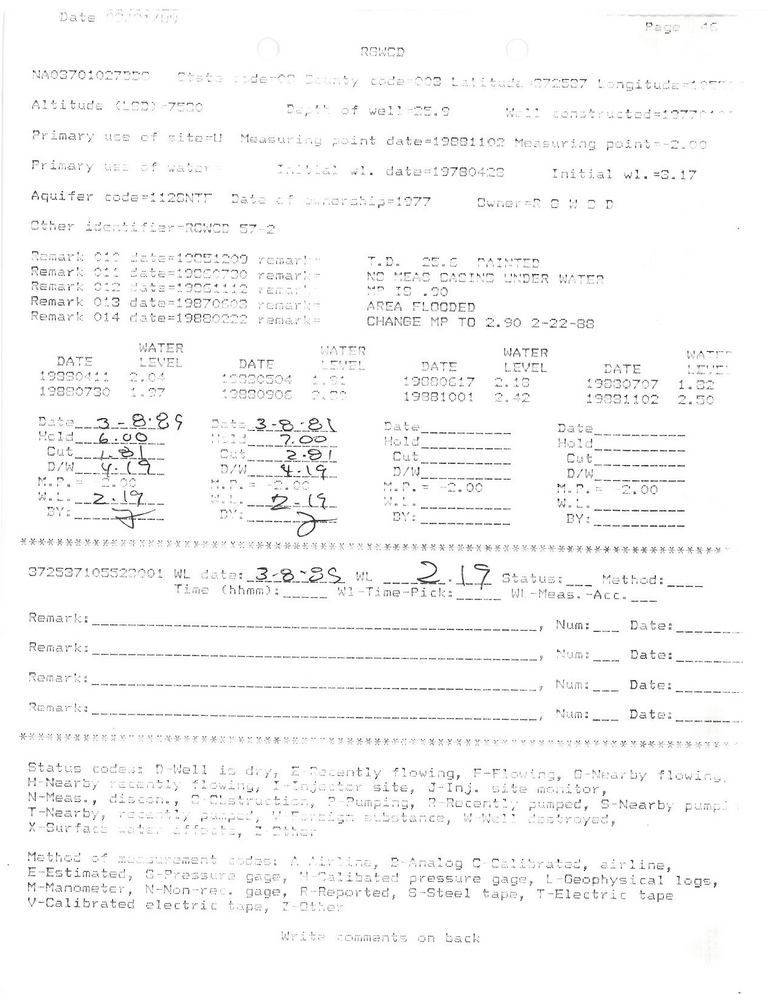 Date
Page 46
RGWCD
State code= County code=003 Latitude=372537 Longitude=
Altitude (LSD)=7580 Depth of well=25.9 Well constructed=
Primary use of site=U Measuring point date=19881102 Measuring point=-2.00
Primary use of water= Initial wl. date=19780428 Initial wl.=3.17
Aquifer code= Date of ownership=1977 Owner=R G W C D
Other identifier=RGWCD 57-2
Remark 010 date=19851209 remark= T.D. 25.6 PAINTED
Remark 011 date=19860730 remark= NO MEAS CASING UNDER WATER
Remark 012 date=19861112 remark= MP IS .90
Remark 013 date=19870603 remark= AREA FLOODED
Remark 014 date=19880222 remark= CHANGE MP TO 2.90 2-22-88
WATER WATER WATER WATER
DATE LEVEL DATE LEVEL DATE LEVEL DATE LEVEL
19880411 2.04 19880504 1.91 19880617 2.18 19880707 1.82
19880730 1.97 19880906 19881001 2.42 19881102 2.50
Date 3-8-89 Date 3-8- Date Date
Hold 6.00 Hold 7.00 Hold Hold
Cut 1.81 Cut 2.81 Cut Cut
D/W 4.19 D/W 4.19 D/W D/W
M.P.= -2.00 M.P.= -2.00 M.P.= -2.00 M.P.= -2.00
W.L. 2.19 W.L. 2.19 W.L. W.L.
BY: BY: BY: BY:
WL date: 3-8-89 WL 2.19 Status: Method:
Time (hhmm): Wl-Time-Pick: WL-Meas.-Acc.
Remark: , Num: Date:
Remark: , Num: Date:
Remark: , Num: Date:
Remark: , Num: Date:
Status codes: D-Well is dry, E-Recently flowing, F-Flowing, G-Nearby flowing,
H-Nearby recently flowing, I-Injector site, J-Inj. site monitor,
N-Meas., discon., O-Obstruction, P-Pumping, R-Recently pumped, S-Nearby
T-Nearby, recently pumped, V-Foreign substance, W-Well destroyed,
X-Surface water affects, Z-Other
Method of measurement codes: A Airline, B-Analog C-Calibrated, airline,
E-Estimated, G-Pressure gage, H-Calibated pressure gage, L-Geophysical logs,
M-Manometer, N-Non-rec. gage, R-Reported, S-Steel tape, T-Electric tape
V-Calibrated electric tape, Z-Other
Write comments on back